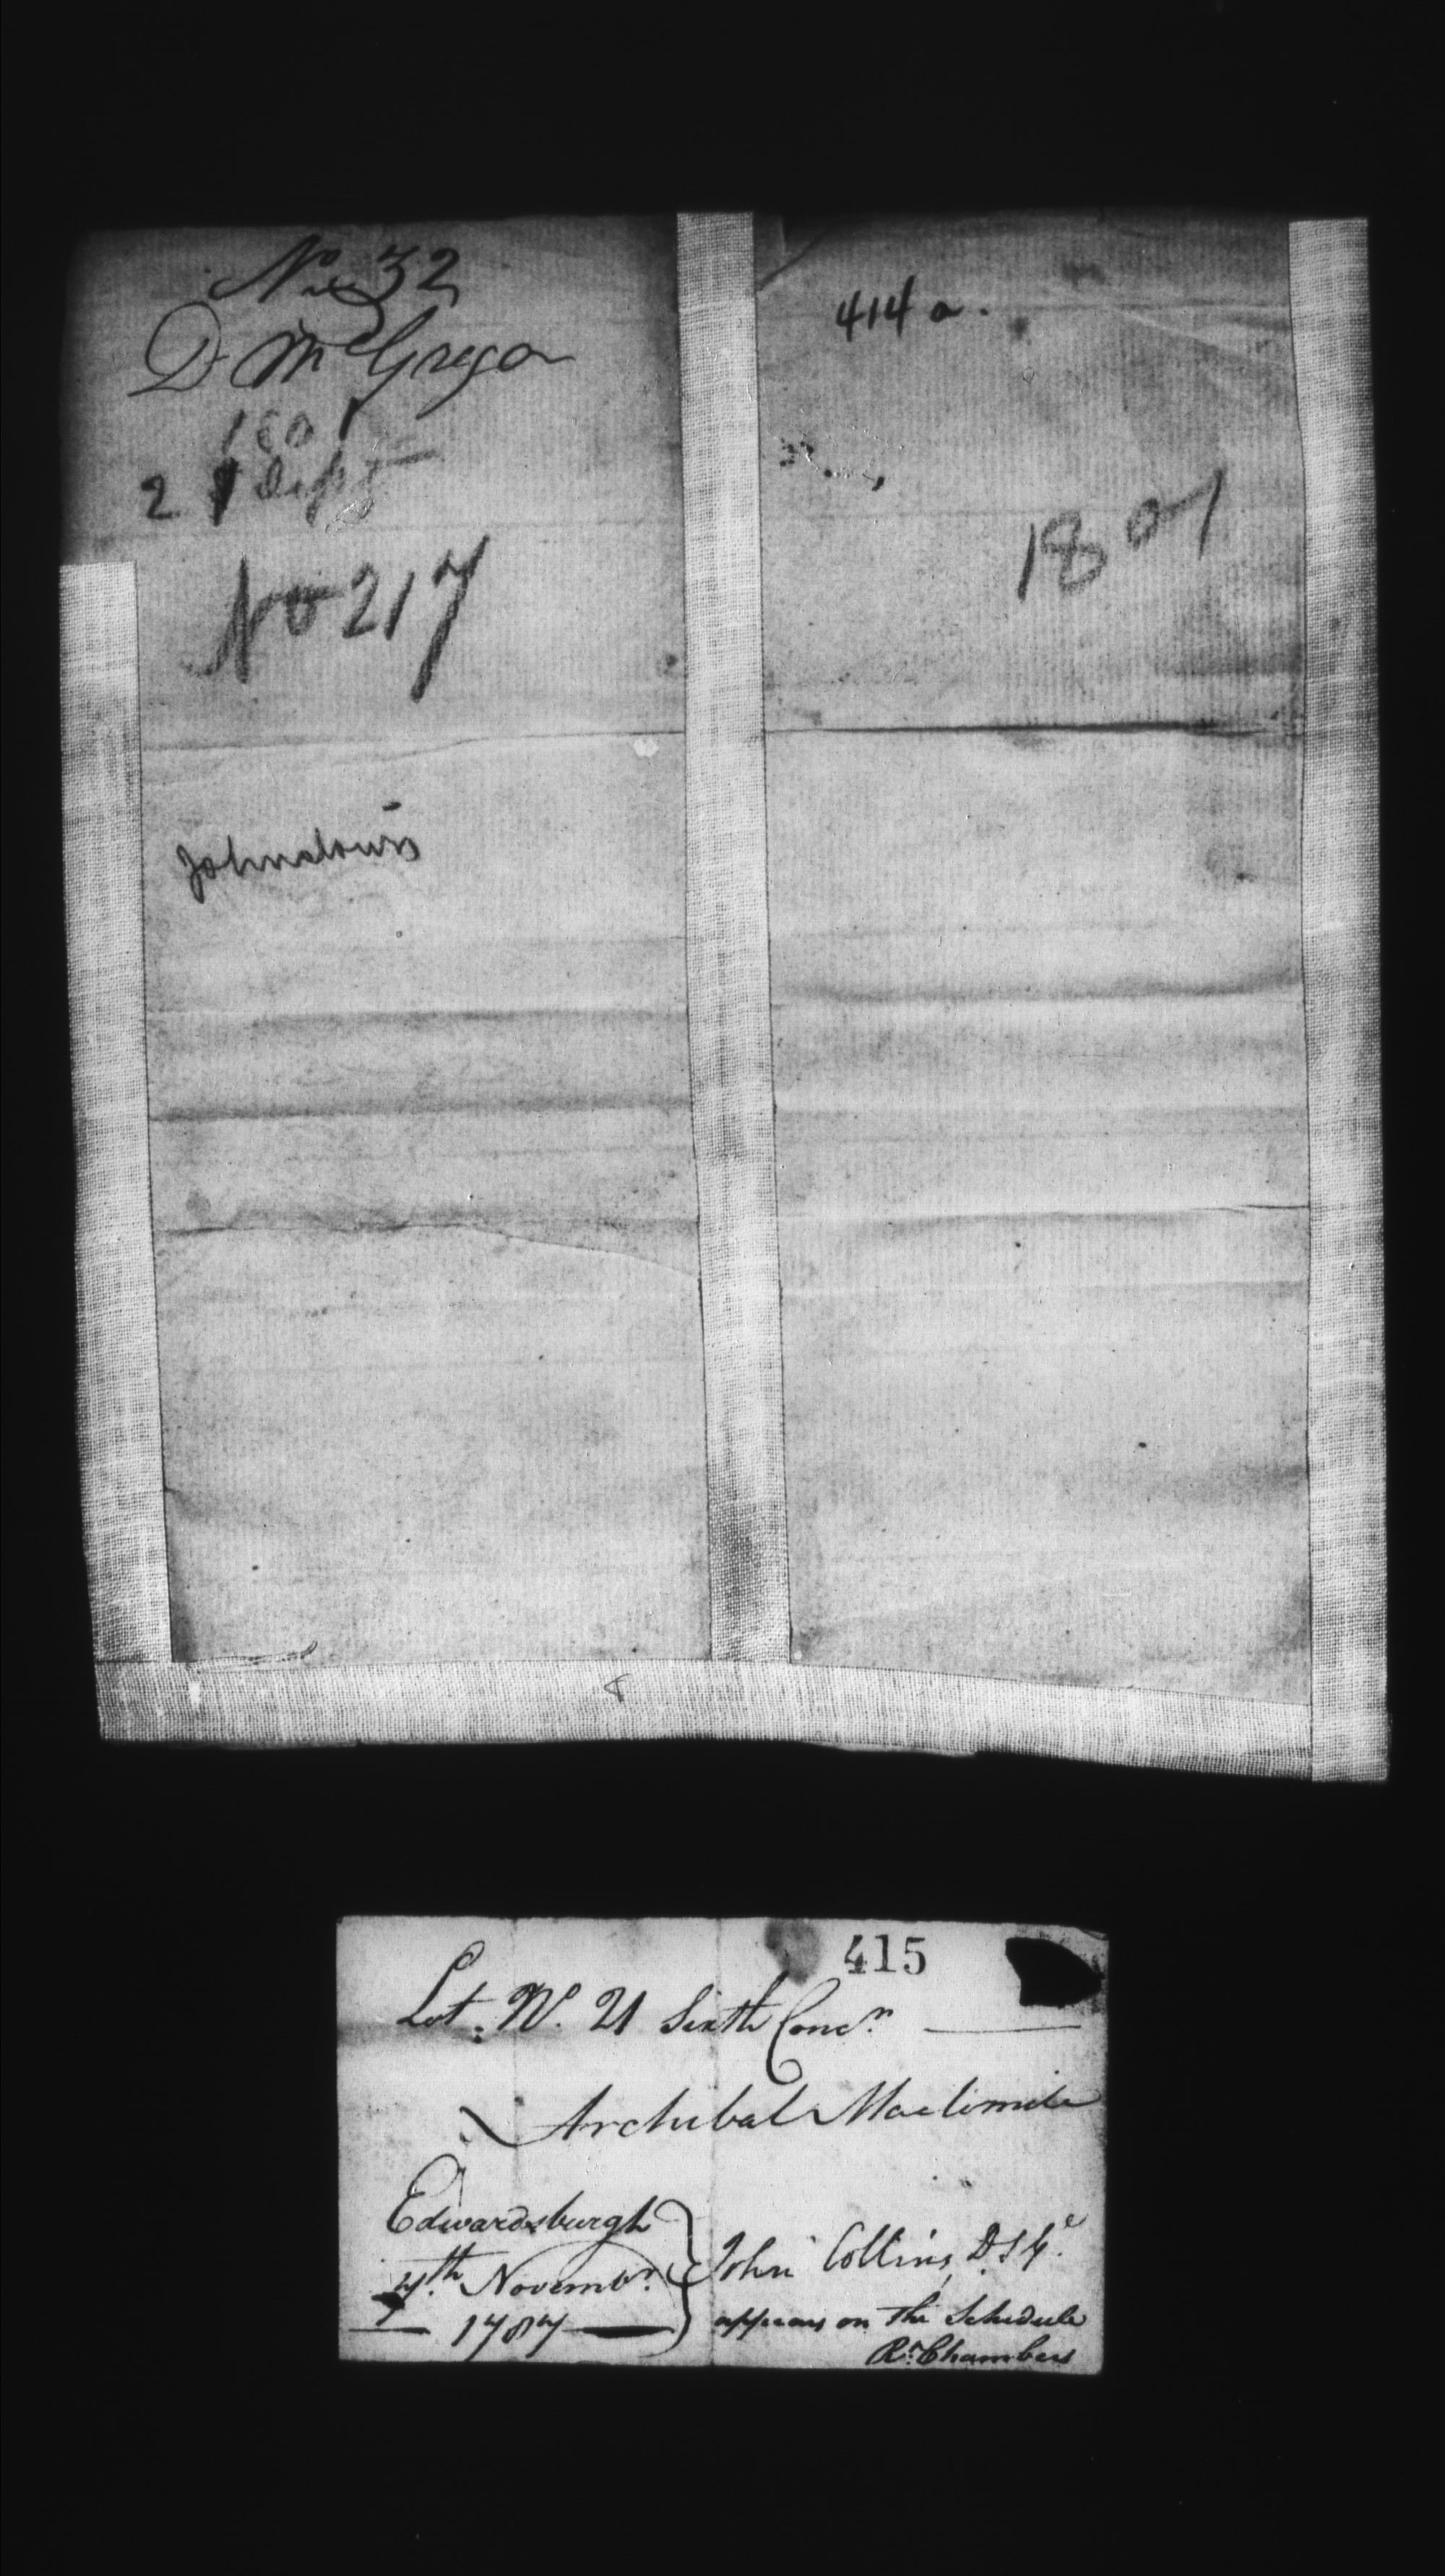 No. 32
D McGregor
1801
2 Sept
No 217
Johnstown
414a.
1801
415
Lot. No. 21 Sixth Concn.
Archibal
Edwardsburgh
4th Novembr.
1787
John Collins, D.S.Ge.
appears on the Schedule
Rr. Chambers